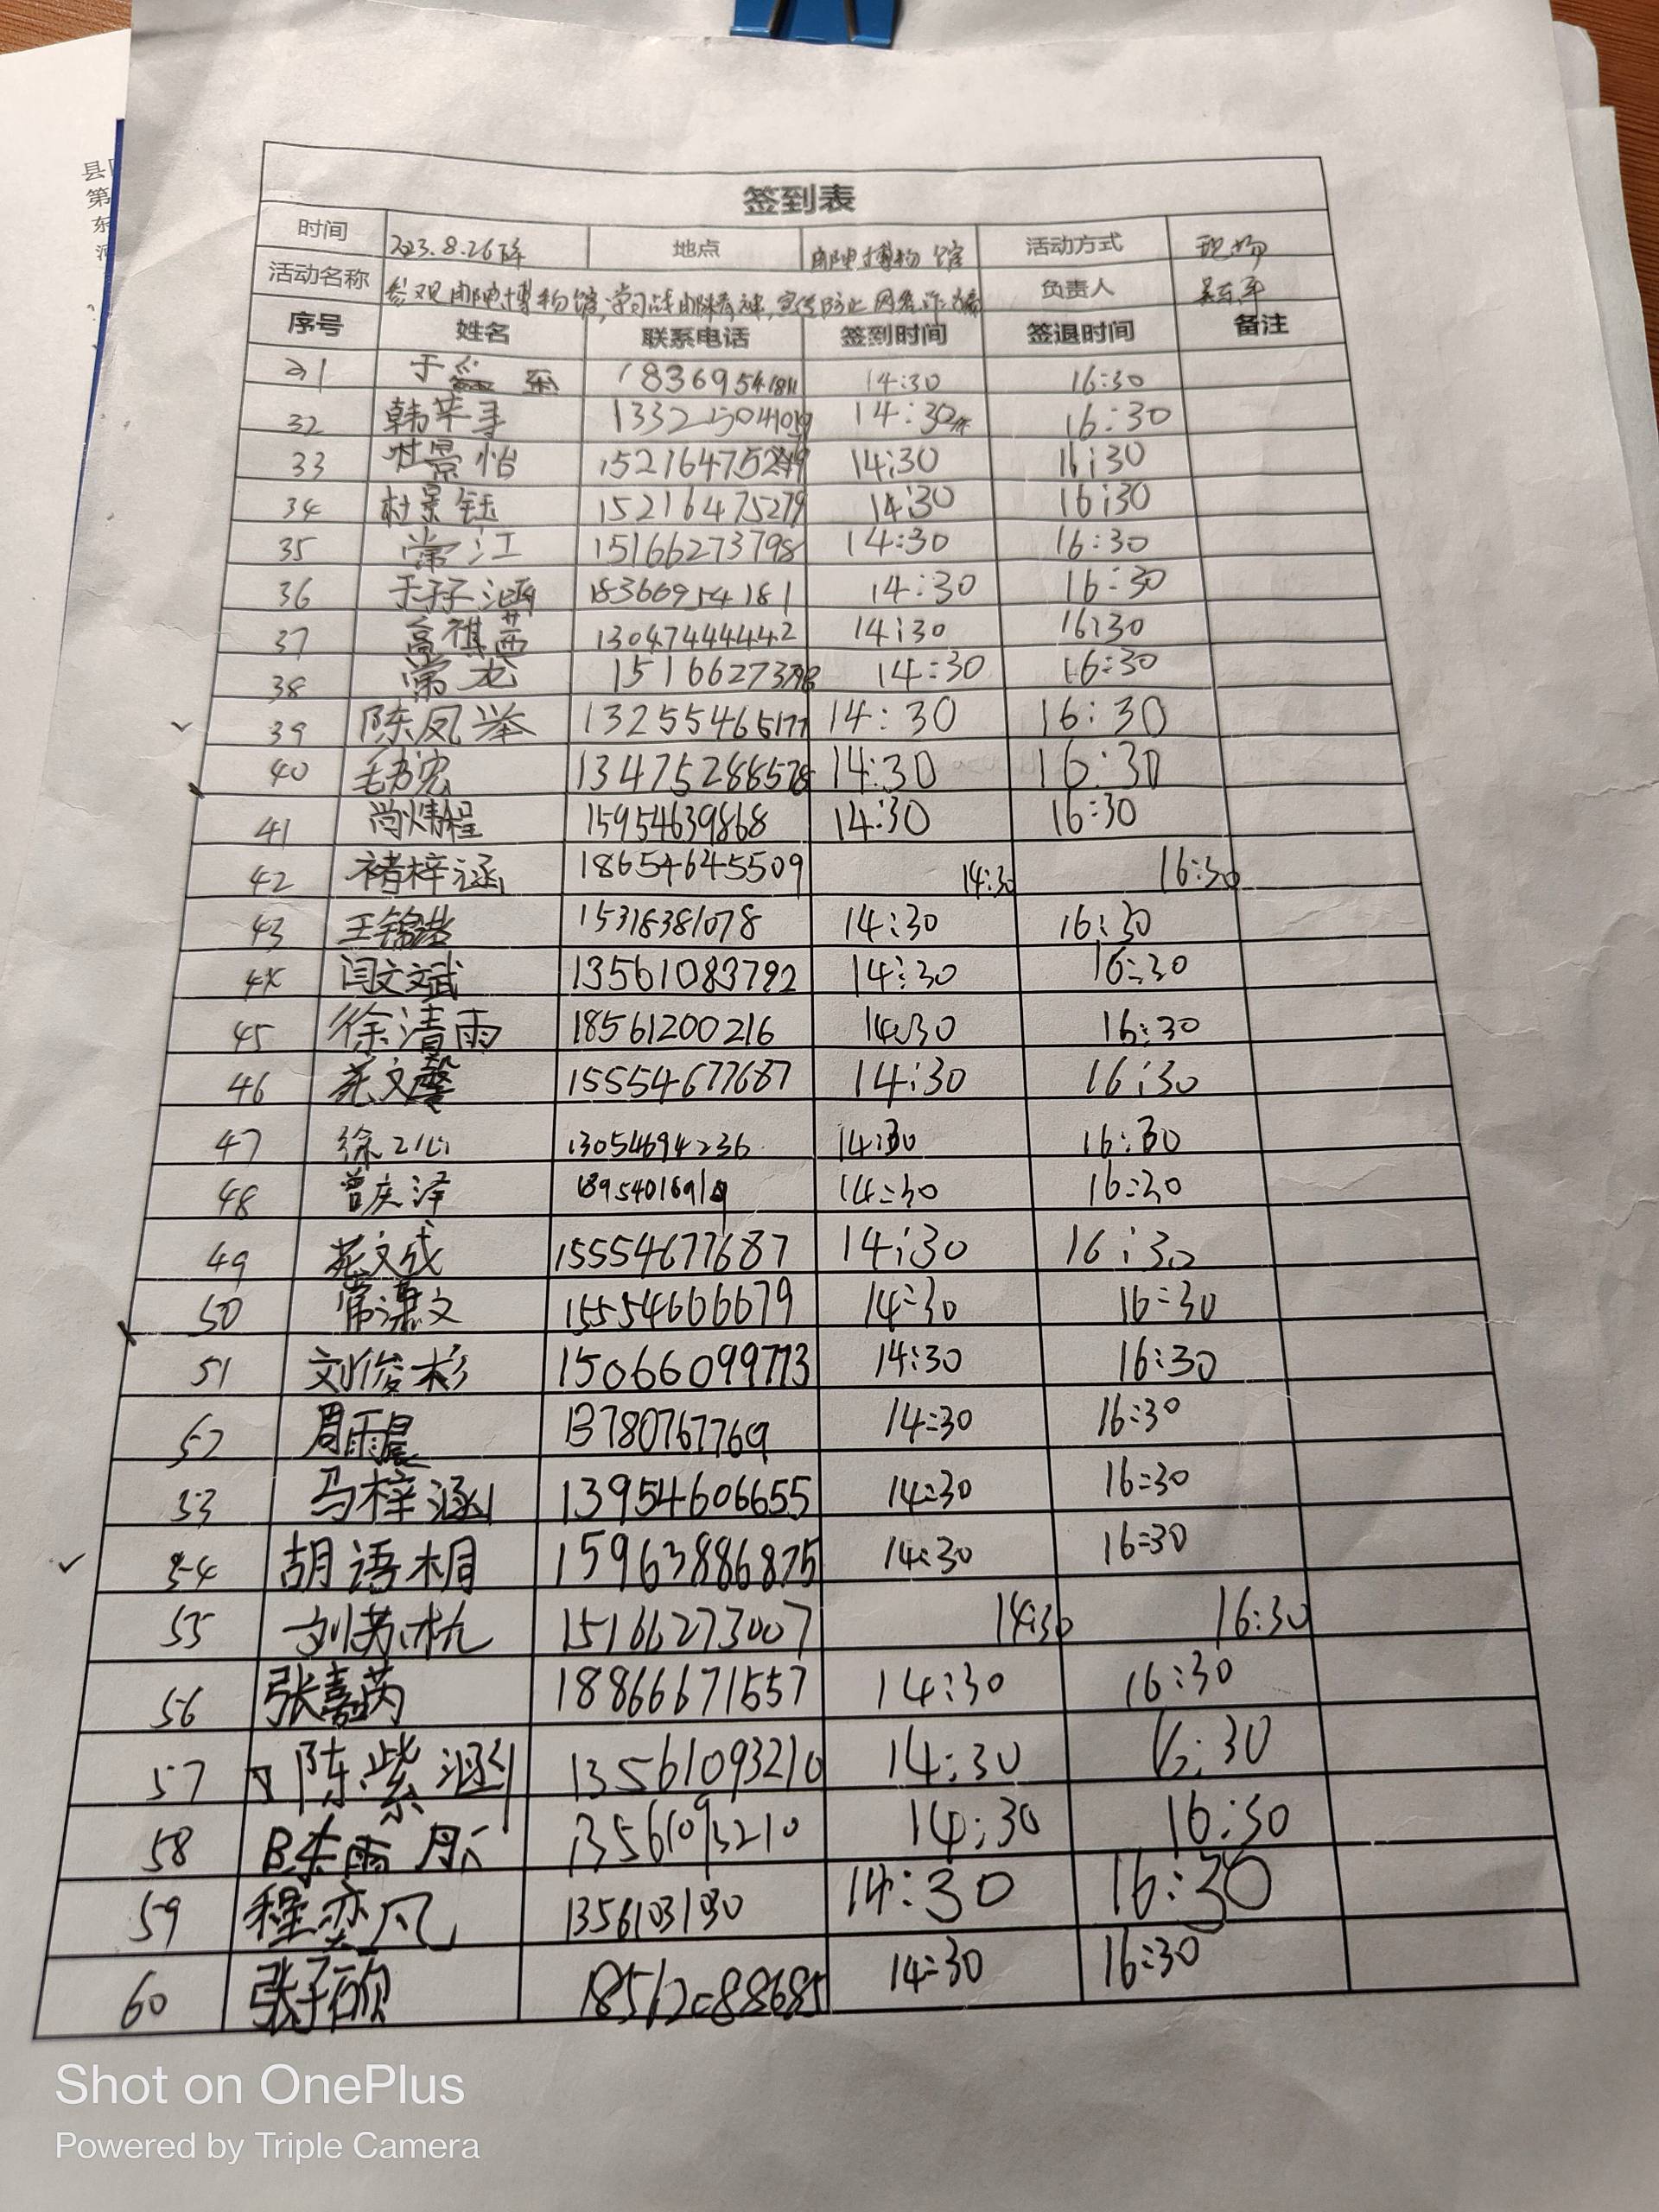 签到表
时间 2023.8.26下午 地点 邮电博物馆 活动方式 现场
活动名称 参观邮电博物馆,学习战邮精神,宣传防止网络诈骗 负责人
序号 姓名 联系电话 签到时间 签退时间 备注
31 于 14:30 16:30
32 韩苹 14:30 16:30
33 杜景怡 14:30 16:30
34 杜景钰 15216475279 14:30 16:30
35 常江 15166273798 14:30 16:30
36 于子涵 18366954181 14:30 16:30
37 高祺茜 13047444442 14:30 16:30
38 常龙 15166273798 14:30 16:30
39 陈凤举 13255465177 14:30 16:30
40 毛书宏 13475288578 14:30 16:30
41 尚炳程 15954639868 14:30 16:30
42 褚梓涵 18654645509 14:30 16:30
43 王锦浩 15318381078 14:30 16:30
44 闫文斌 13561083792 14:30 16:30
45 徐清雨 18561200216 14:30 16:30
46 苑文馨 15554677687 14:30 16:30
47 徐 心 13054694236 14:30 16:30
48 曾庆泽 14:30 16:30
49 苑文成 15554677687 14:30 16:30
50 常潇文 15554666679 14:30 16:30
51 刘俊杉 15066099773 14:30 16:30
52 周雨晨 13780767769 14:30 16:30
53 马梓涵 13954606655 14:30 16:30
54 胡语桐 15963886875 14:30 16:30
55 刘苏杭 15166273007 14:30 16:30
56 张嘉芮 18866671557 14:30 16:30
57 陈紫涵 13561093210 14:30 16:30
58 陈雨彤 13561093210 14:30 16:30
59 程奕凡 14:30 16:30
60 张子硕 18562088685 14:30 16:30
县
第
东
Shot on OnePlus
Powered by Triple Camera